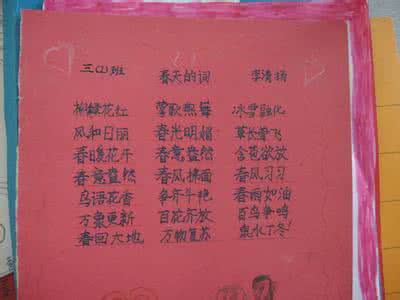 三(2)班 春天的词 李清扬
柳绿花红 莺歌燕舞 冰雪融化
风和日丽 春光明媚 草长莺飞
春暖花开 春意盎然 含苞欲放
春意盎然 春风拂面 春风习习
鸟语花香 争齐斗艳 春雨如油
万象更新 百花齐放 百鸟争鸣
春回大地 万物复苏 泉水丁冬!